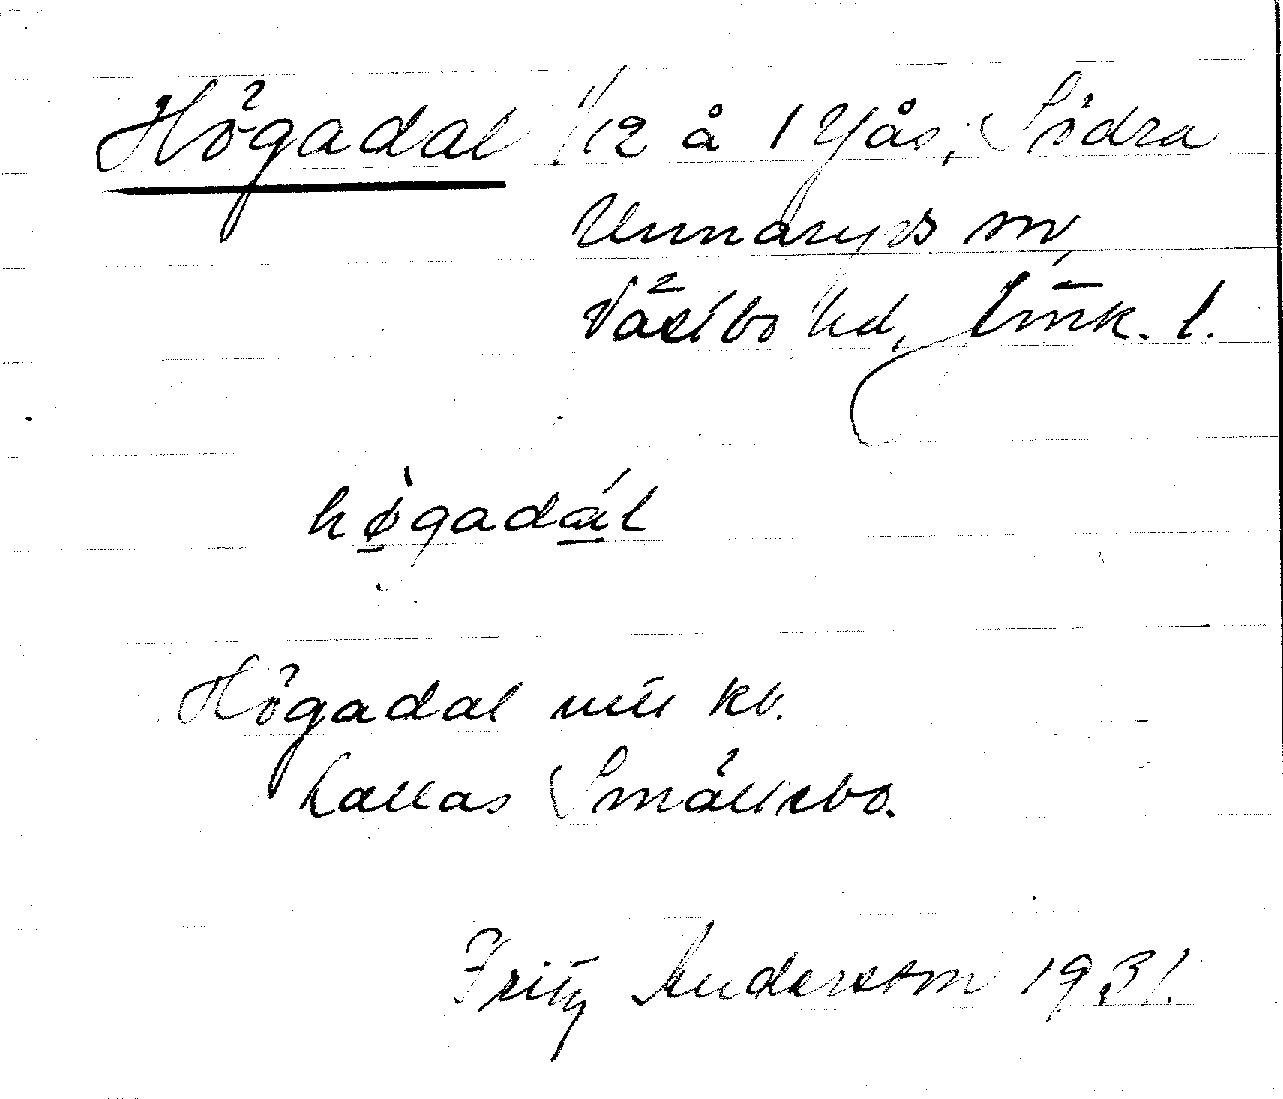 Högadal 1/12 å 1 Yås, Södra
Unnaryds sn,
Västbo hd, Jönk. l.
hø̀gadál
Högadal
kallas Småttebo.
Fritz Anderson 1931.